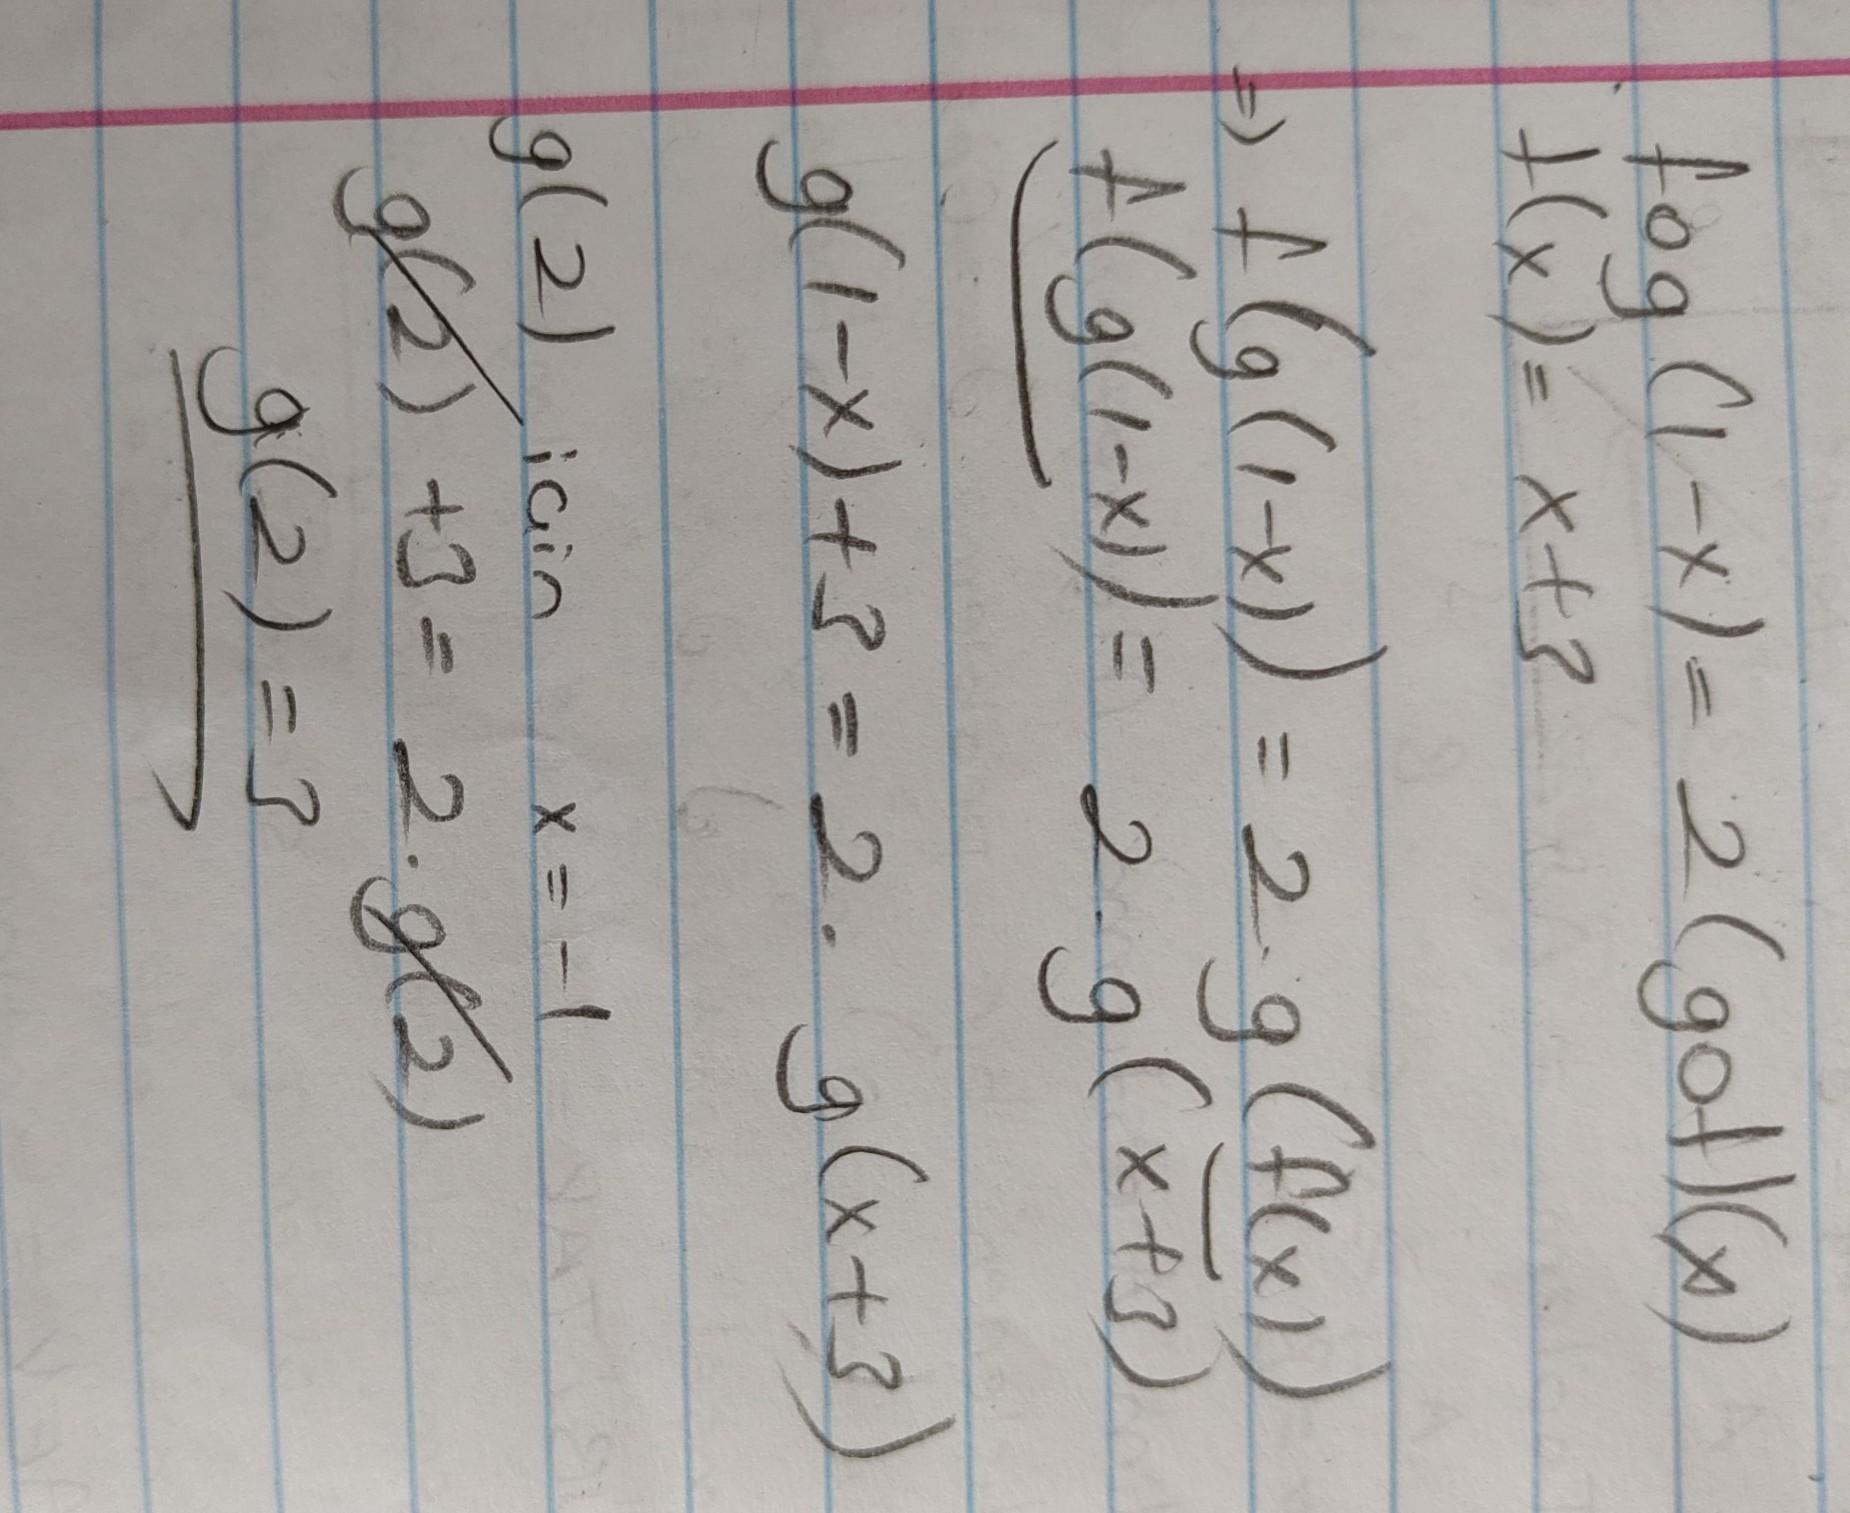 fog(1-x) = 2(gof)(x)
f(x) = x+3
=> f(g(1-x)) = 2.g(f(x))
f(g(1-x)) = 2.g(x+3)
g(1-x)+3 = 2. g(x+3)
g(2) için x=-1
g(2) +3 = 2.g(2)
g(2) = 3